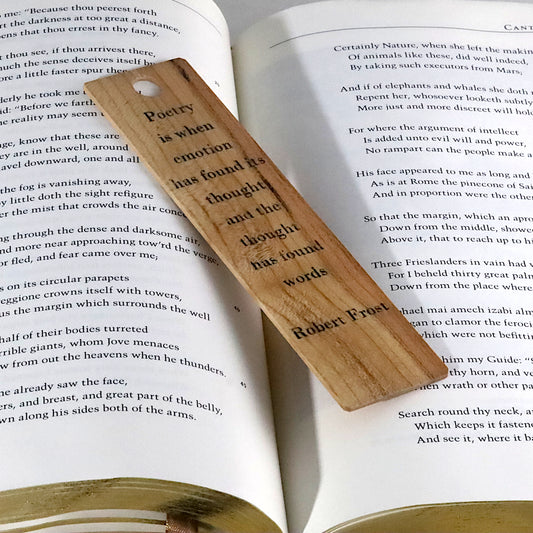 me: "Because thou peerest forth
rt the darkness at too great a distance,
pens that thou errest in thy fancy.
thou see, if thou arrivest there,
uch the sense deceives itself by
re a little faster spur thee
derly he took me
id: "Before we farth
he reality may seem
nge, know that these are
ey are in the well, around
avel downward, one and all
the fog is vanishing away,
by little doth the sight refigure
er the mist that crowds the air conce
rough the dense and darksome air,
nd more near approaching tow'rd the verge,
or fled, and fear came over me;
s on its circular parapets
reggione crowns itself with towers,
us the margin which surrounds the well
half of their bodies turreted
rrible giants, whom Jove menaces
w from out the heavens when he thunders.
he already saw the face,
ers, and breast, and great part of the belly,
wn along his sides both of the arms.
45
Poetry
is when
emotion
has found its
thought
and the
thought
has found
words
Robert Frost
CANT
Certainly Nature, when she left the making
Of animals like these, did well indeed,
By taking such executors from Mars;
And if of elephants and whales she doth n
Repent her, whosoever looketh subtly
More just and more discreet will hold
For where the argument of intellect
Is added unto evil will and power,
No rampart can the people make a
His face appeared to me as long and
As is at Rome the pinecone of Sai
And in proportion were the other
So that the margin, which an apro
Down from the middle, showe
Above it, that to reach up to hi
Three Frieslanders in vain had v
For I beheld thirty great palm
Down from the place wher
phael mai amech izabi alm
gan to clamor the feroci
which were not befitting
him my Guide: "S
thy horn, and ve
hen wrath or other pa
Search round thy neck, a
Which keeps it fastene
And see it, where it ba